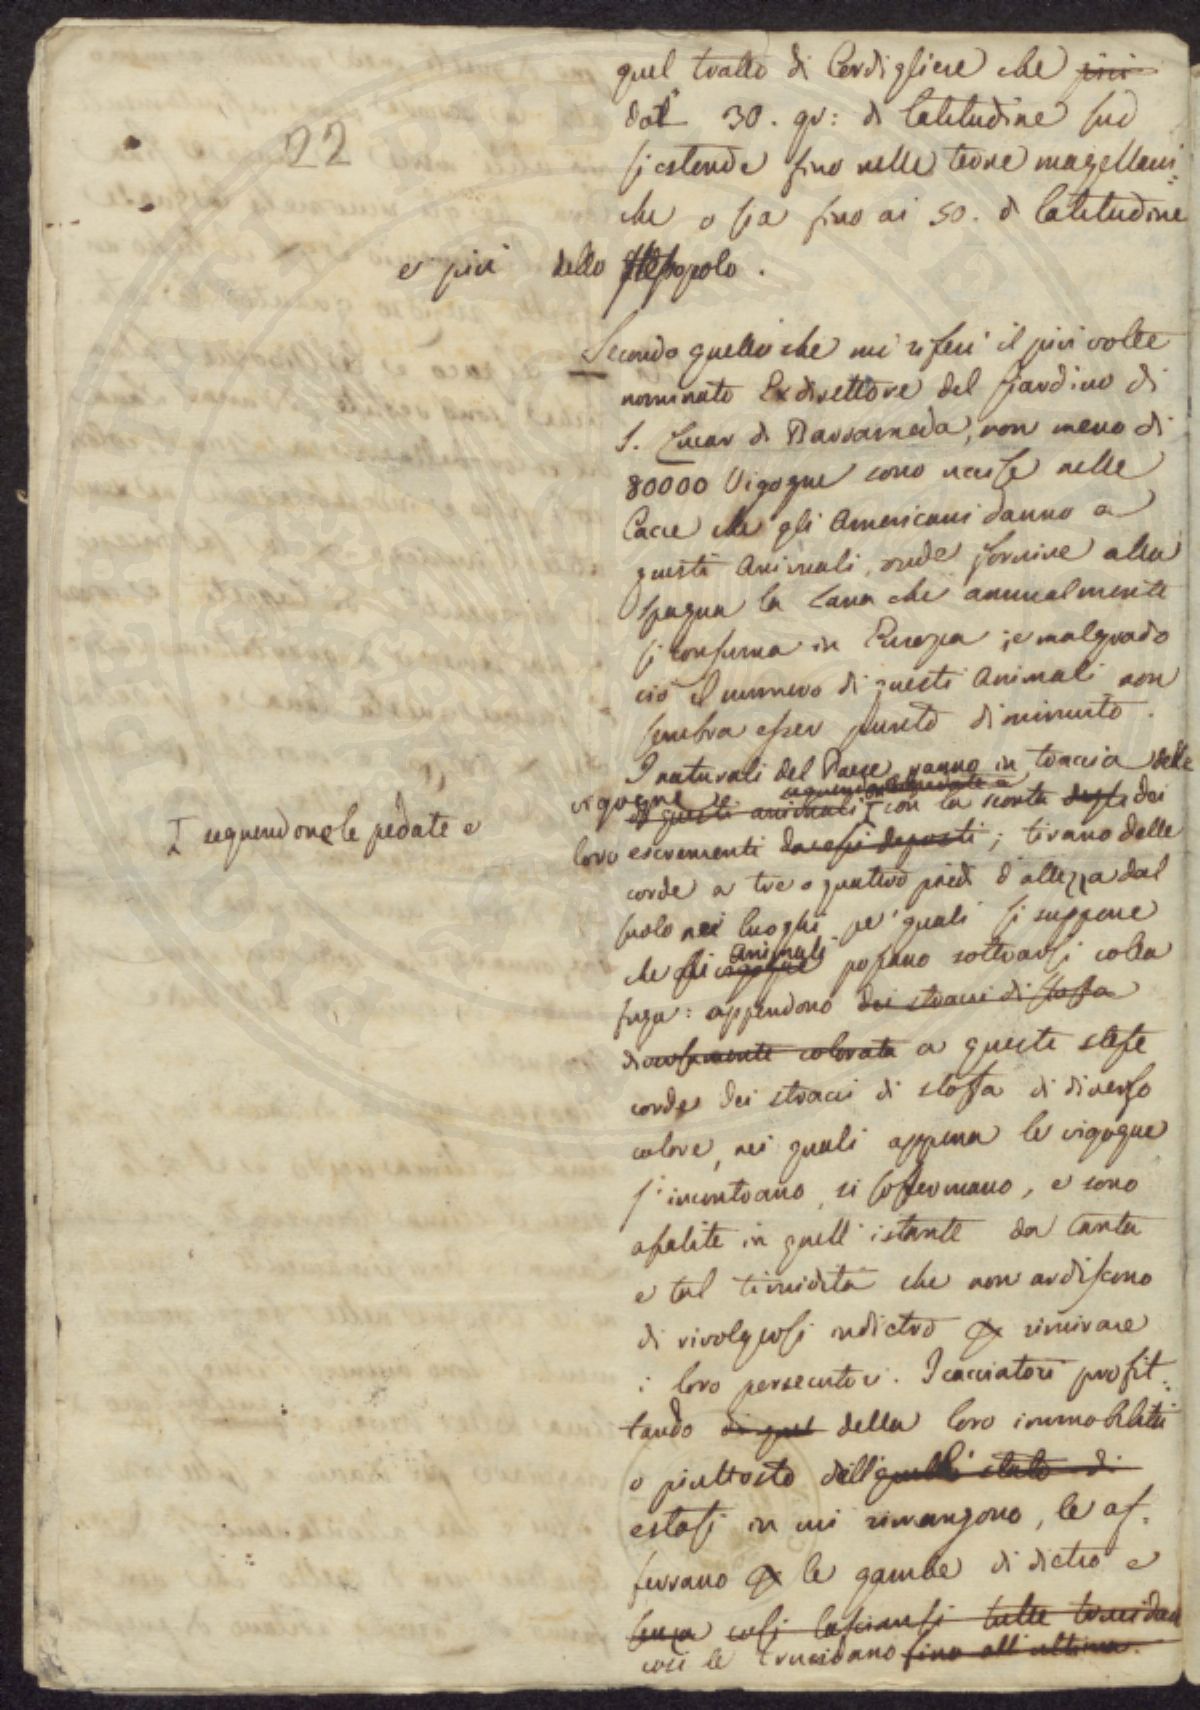 22
quel tratto di Cordigliere che più
dal 30. gr: di latitudine sud
si estende fino nelle terre magellani:
che o sia fino ai 50. d latitudine
e più dello stesso polo.
Secondo quello che mi riferì il più volte
nominato Exdirettore del Giardino di
S. Lucar di Barrameda, non meno di
80000 Vigogne sono uccise nelle
Cacce che gli Americani danno a
questi Animali, onde fornire alla
Spagna la Lana che annualmente
si consuma in Europa; e malgrado
ciò il numero di questi Animali non
sembra esser punto diminuito.
I naturali del Paese vanno in traccia delle
vigogne
di questi animali I con la scorta degli dei
I seguendone le pedate e
loro escrementi da essi deposti; tirano delle
corde a tre o quattro piedi d'altezza dal
suolo nei luoghi pe' quali si suppone
che animali possano sottrarsi colla
fuga: appendono dei stracci di stoffa
diversamente colorata a queste stesse
corde dei stracci di stoffa di diverso
colore, nei quali appena le vigogne
s'incontrano, si soffermano, e sono
assalite in quell'istante da tanta
e tal timidità che non ardiscono
di rivolgersi indietro rimirare
i loro persecutori. I cacciatori profit:
tando di quel della loro immobilità
o piuttosto dell quello stato di
estasi in cui rimangono, le af:
ferrano le gambe di dietro e
senza così lasciarsi tutte trucidare
così le trucidano fino all'ultima.